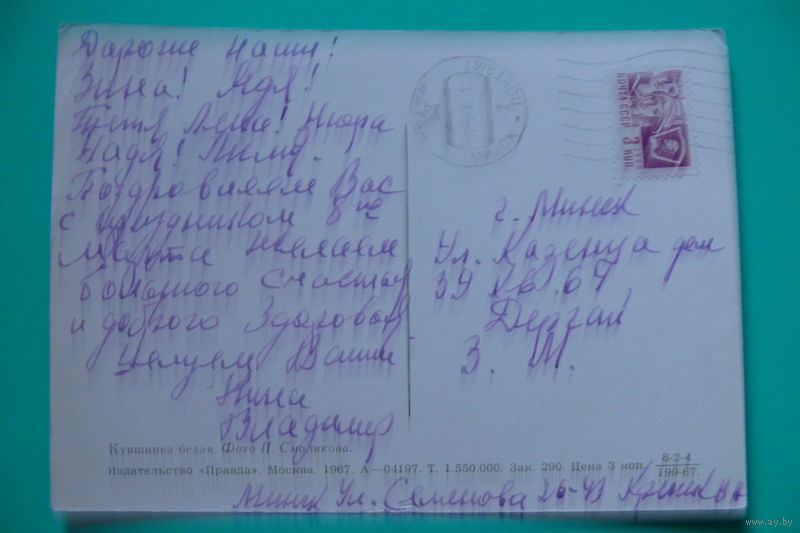 Дарогие наши!
Зина! Ядя!
Тётя Лена! Нюра
Надя! Лиля.
Поздровляем Вас
с праздником 8 ме
Марта желаем
большого счастья
и доброго Здоровья
целуем Ваши
Нина
Владимир
ПОЧТА СССР 3 КОП
г. Минск
Ул. Казенца дом
39 кв. 67
Дергай
З. М.
Кувшинка белая. Фото П. Смолякова.
Издательство «Правда». Москва. 1967. А—04197. Т. 1.550.000. Зак. 290. Цена 3 коп.
8-2-4
199-67.
Минск Ул. Семенова 26-43
www.ay.by